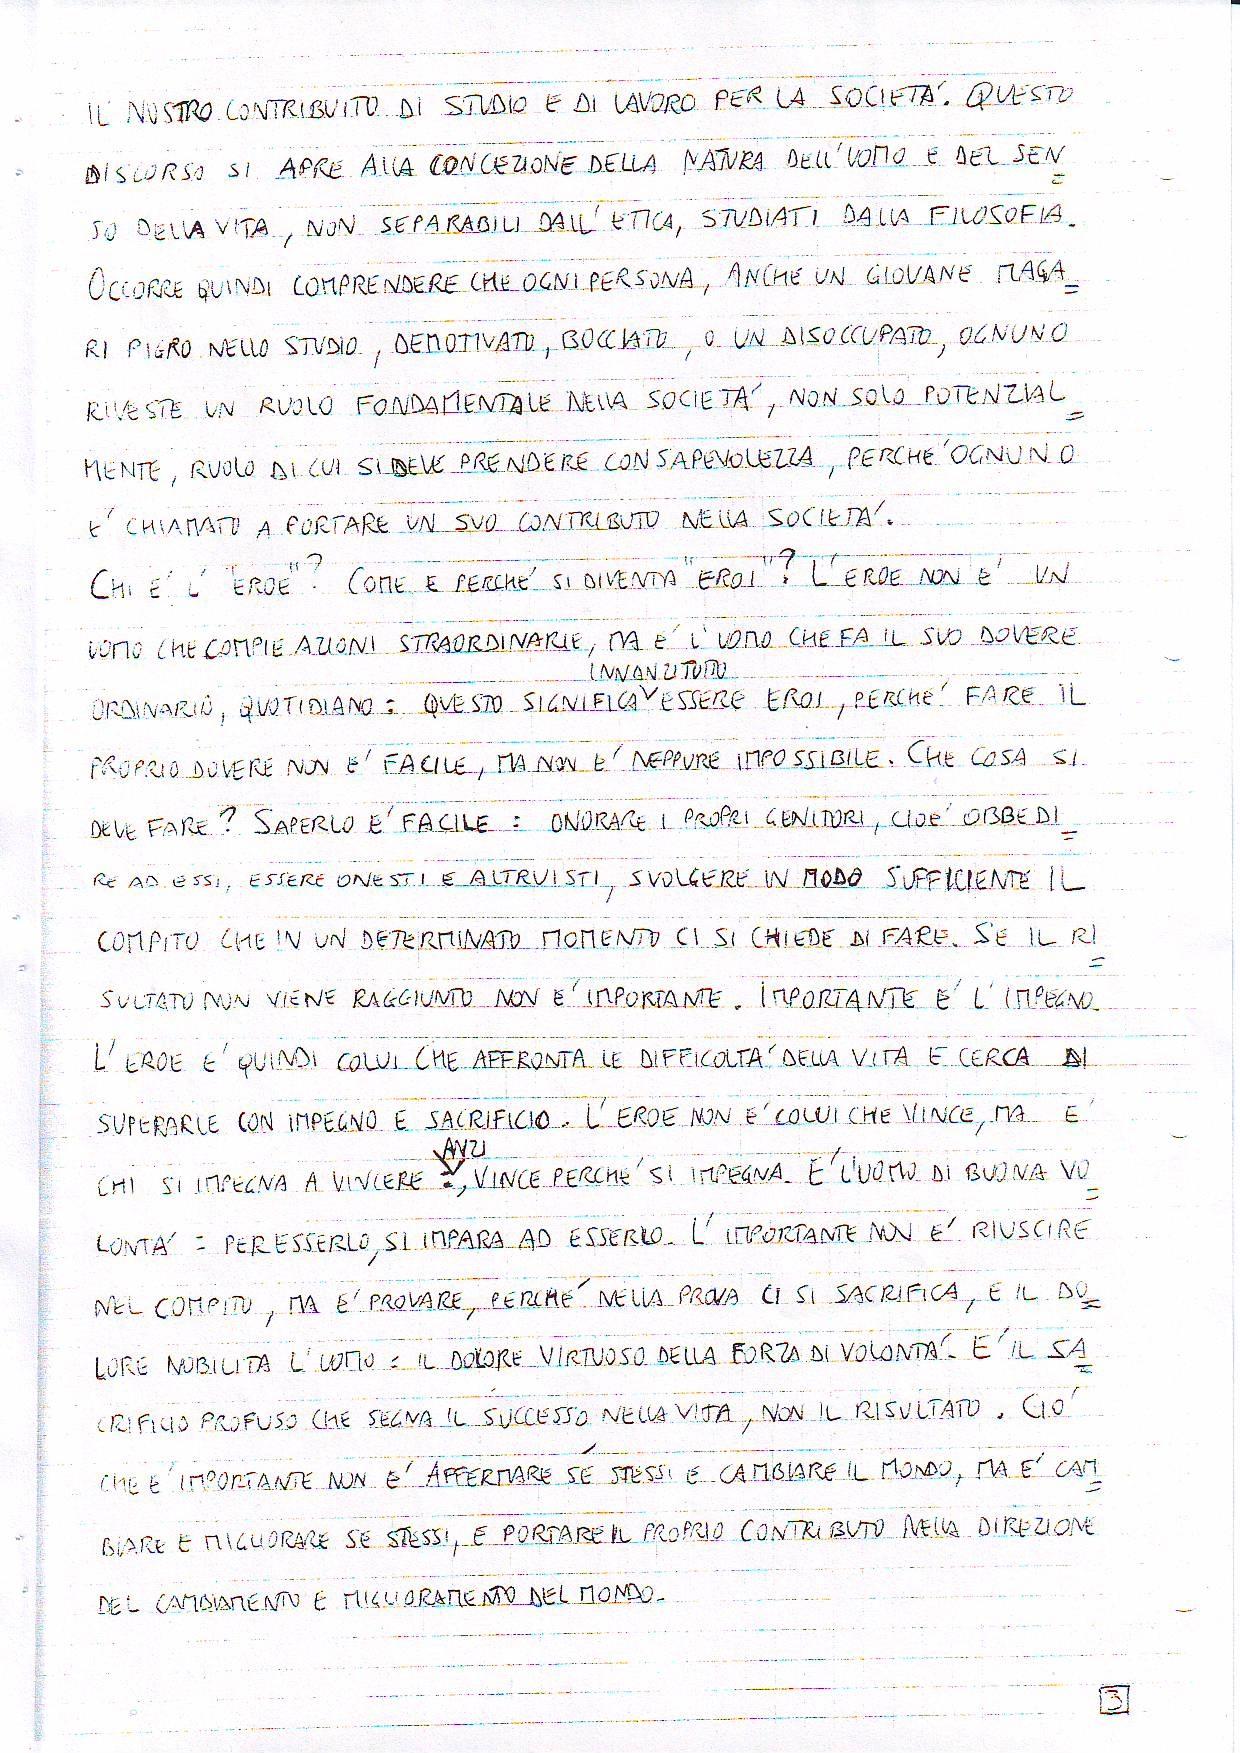 IL NOSTRO CONTRIBUITO DI STUDIO E DI LAVORO PER LA SOCIETA'. QUESTO
DISCORSO SI APRE ALLA CONCEZIONE DELLA NATURA DELL'UOMO E DEL SEN=
SO DELLA VITA, NON SEPARABILI DALL'ETICA, STUDIATI DALLA FILOSOFIA.
OCCORRE QUINDI COMPRENDERE CHE OGNI PERSONA, ANCHE UN GIOVANE MAGA=
RI PIGRO NELLO STUDIO, DEMOTIVATO, BOCCIATO, O UN DISOCCUPATO, OGNUNO
RIVESTE UN RUOLO FONDAMENTALE NELLA SOCIETA', NON SOLO POTENZIAL=
MENTE, RUOLO DI CUI SI DEVE PRENDERE CONSAPEVOLEZZA, PERCHE' OGNUNO
E' CHIAMATO A PORTARE UN SUO CONTRIBUTO NELLA SOCIETA'.
CHI E' L' "EROE"? COME E PERCHE' SI DIVENTA "EROI"? L'EROE NON E' UN
UOMO CHE COMPIE AZIONI STRAORDINARIE, MA E' L'UOMO CHE FA IL SUO DOVERE
INNANZITUTTO
ORDINARIO, QUOTIDIANO: QUESTO SIGNIFICA ESSERE EROI, PERCHE' FARE IL
PROPRIO DOVERE NON E' FACILE, MA NON E' NEPPURE IMPOSSIBILE. CHE COSA SI
DEVE FARE? SAPERLO E' FACILE: ONORARE I PROPRI GENITORI, CIOE' OBBEDI=
RE AD ESSI, ESSERE ONESTI E ALTRUISTI, SVOLGERE IN MODO SUFFICIENTE IL
COMPITO CHE IN UN DETERMINATO MOMENTO CI SI CHIEDE DI FARE. SE IL RI=
SULTATO NON VIENE RAGGIUNTO NON E' IMPORTANTE. IMPORTANTE E' L'IMPEGNO.
L'EROE E' QUINDI COLUI CHE AFFRONTA LE DIFFICOLTA' DELLA VITA E CERCA DI
SUPERARLE CON IMPEGNO E SACRIFICIO. L'EROE NON E' COLUI CHE VINCE, MA E'
ANZI
CHI SI IMPEGNA A VINCERE:, VINCE PERCHE' SI IMPEGNA. E' L'UOMO DI BUONA VO=
LONTA': PER ESSERLO, SI IMPARA AD ESSERLO. L'IMPORTANTE NON E' RIUSCIRE
NEL COMPITO, MA E' PROVARE, PERCHE' NELLA PROVA CI SI SACRIFICA, E IL DO=
LORE NOBILITA L'UOMO: IL DOLORE VIRTUOSO DELLA FORZA DI VOLONTA'. E' IL SA=
CRIFICIO PROFUSO CHE SEGNA IL SUCCESSO NELLA VITA, NON IL RISULTATO. CIO'
CHE E' IMPORTANTE NON E' AFFERMARE SÉ STESSI E CAMBIARE IL MONDO, MA E' CAM=
BIARE E MIGLIORARE SE STESSI, E PORTARE IL PROPRIO CONTRIBUTO NELLA DIREZIONE
DEL CAMBIAMENTO E MIGLIORAMENTO DEL MONDO.
3